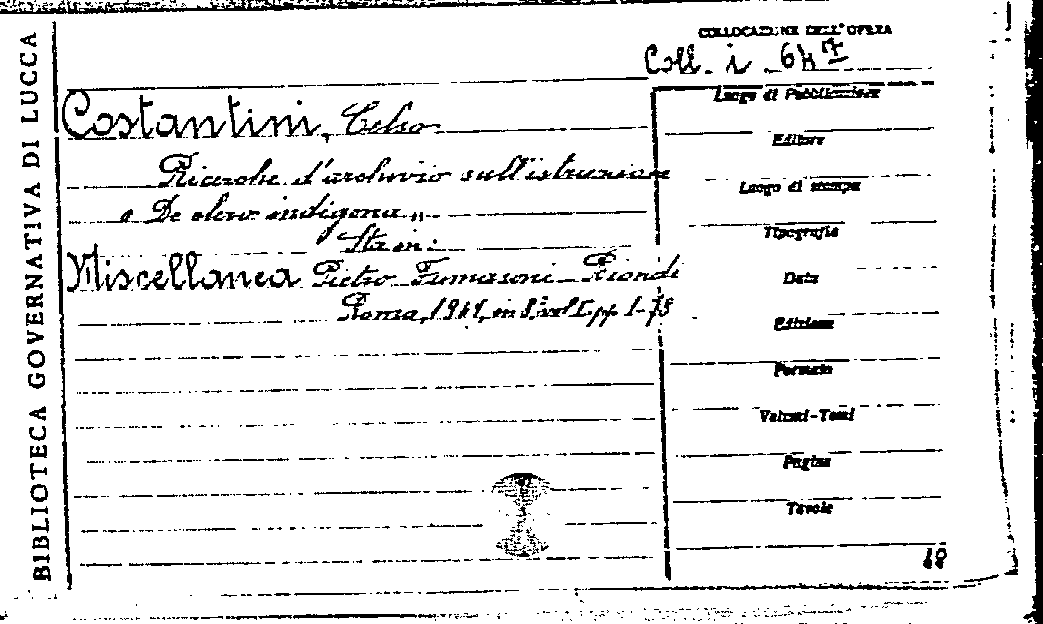 BIBLIOTECA GOVERNATIVA DI LUCCA
COLLOCAZIONE DELL'OPERA
Coll. i 647
Costantini, Celso
Ricerche d'archivio sull'istruzione
"De clero indigena"
Sta in:
Miscellanea Pietro Fumasoni Biondi
Roma, 1947, in 8°, vol I, pp 1-78
Luogo di Pubblicazione
Editore
Luogo di stampa
Tipografia
Data
Edizione
Formato
Volumi-Tomi
Pagine
Tavole